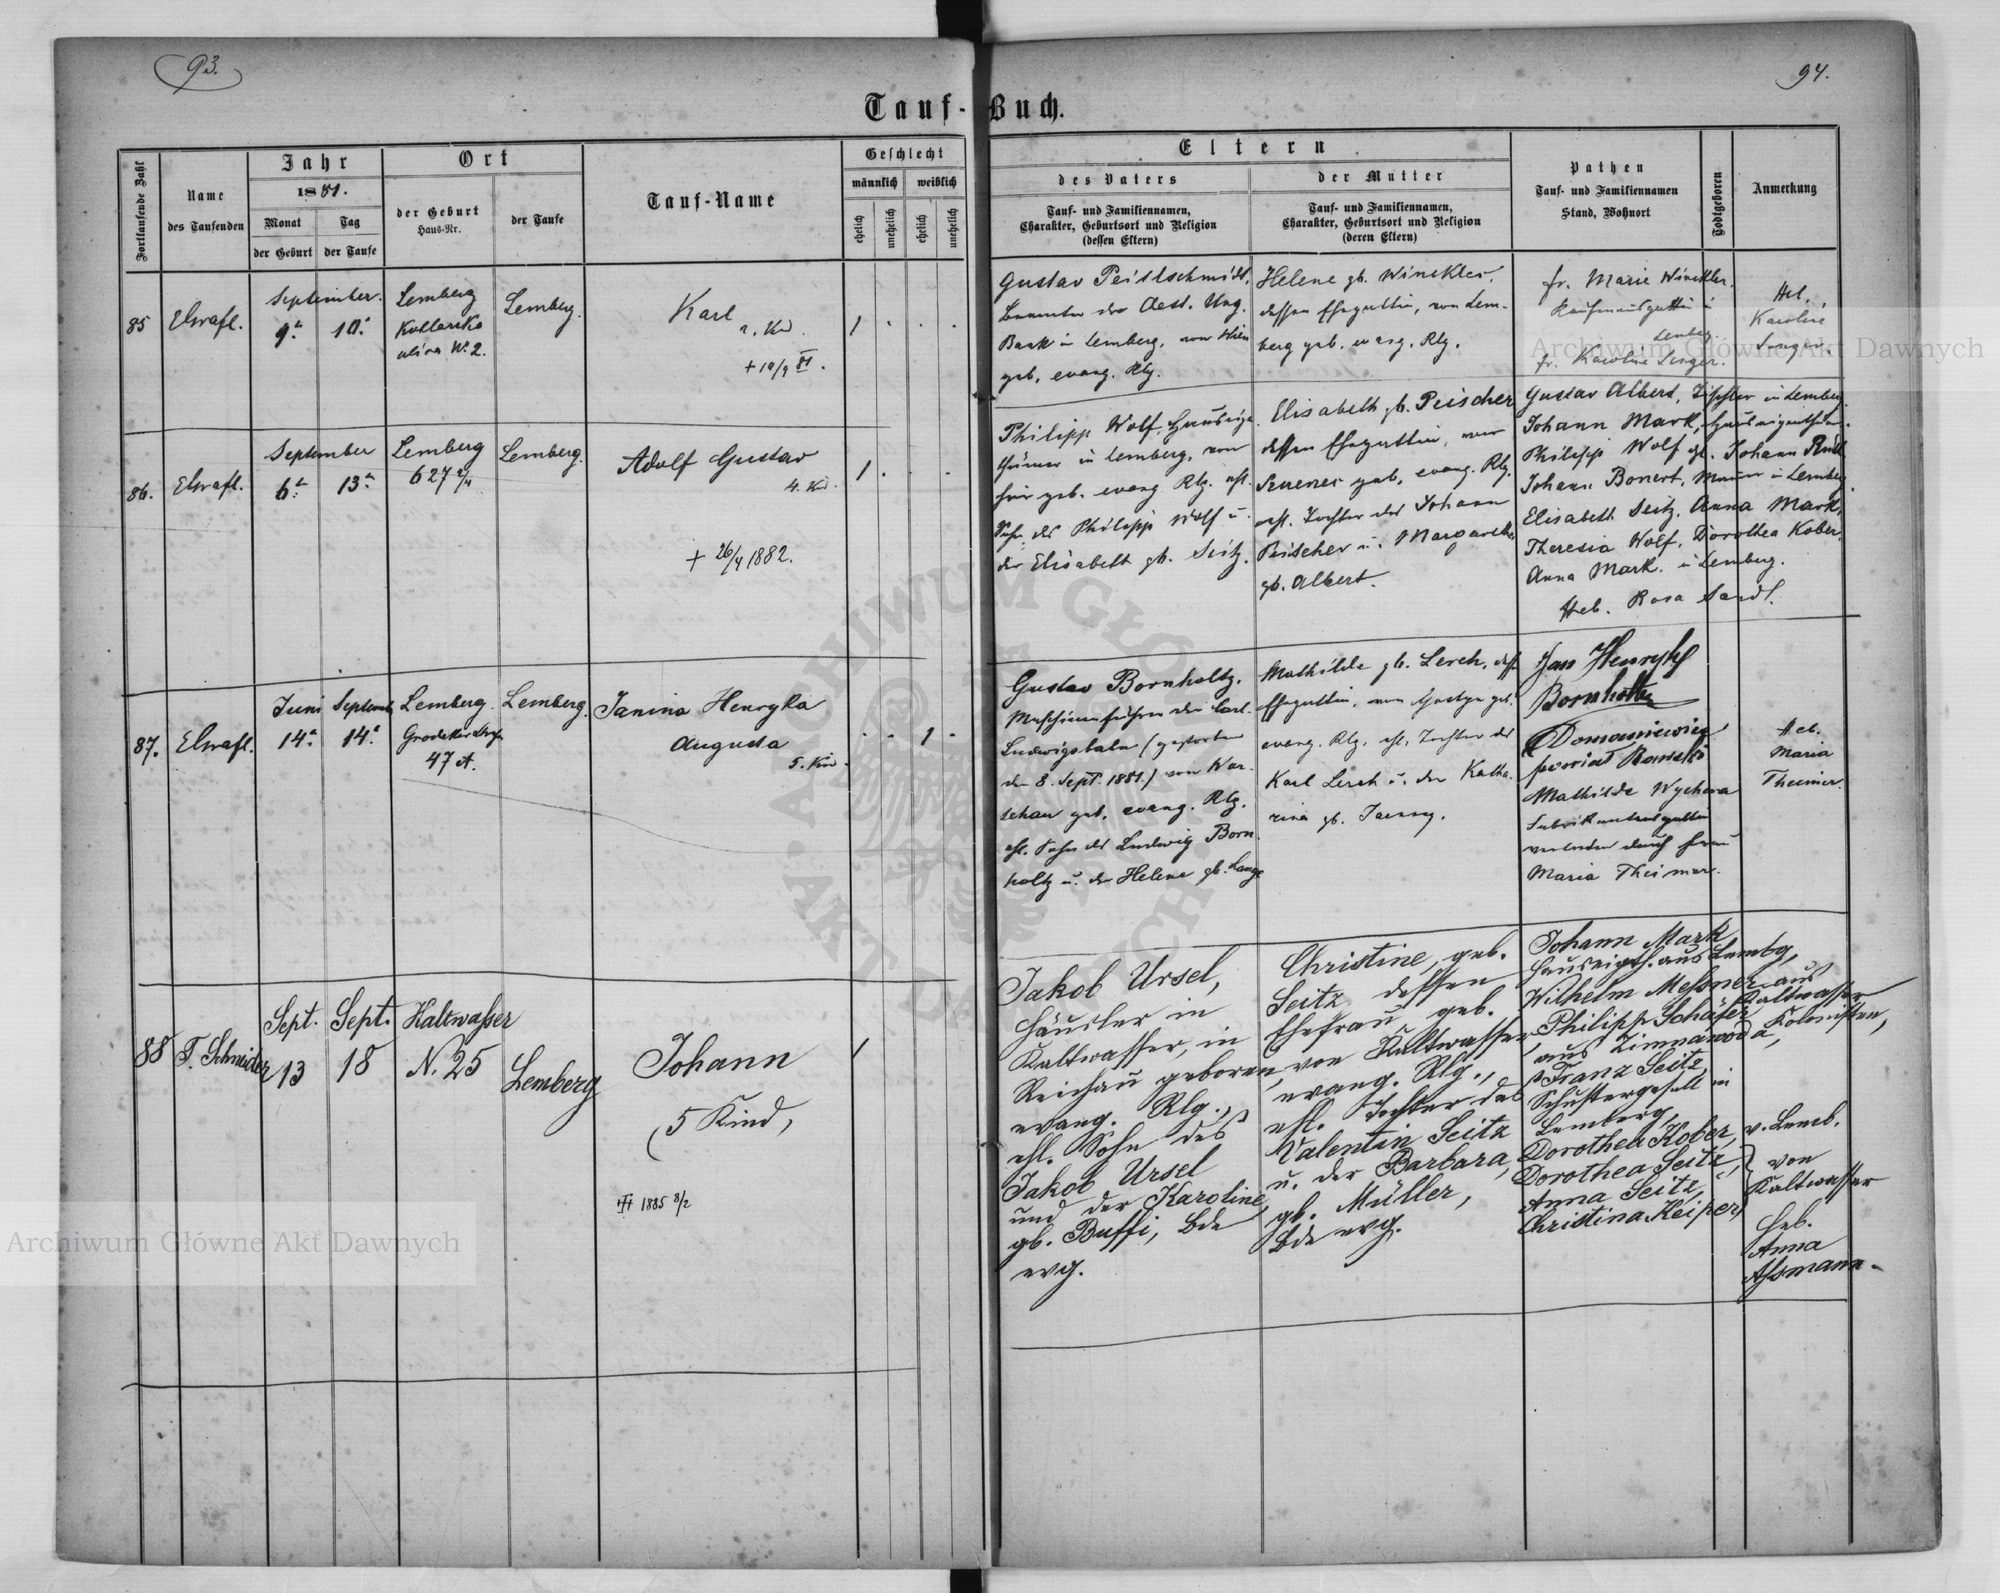 93.
94.
Tauf-Buch.
Fortlaufende Zahl
Name
des Taufenden
Jahr
1881.
Monat
der Geburt
Tag
der Taufe
Ort
der Geburt
Haus-Nr.
der Taufe
Tauf-Name
Geschlecht
männlich
weiblich
ehelich
unehelich
ehelich
unehelich
Eltern
des Vaters
Tauf- und Familiennamen,
Charakter, Geburtsort und Religion
(dessen Eltern)
der Mutter
Tauf- und Familiennamen,
Charakter, Geburtsort und Religion
(deren Eltern)
Pathen
Tauf- und Familiennamen
Stand, Wohnort
Todtgeboren
Anmerkung
85
September.
9. 10.
Lemberg
ulica No. 2.
Lemberg.
Karl
+ 10/9 81.
1
Gustav
Beamter der Oest. Ung.
Bank in Lemberg, von Wien
geb, evang. Rlg.
Helene gb. Winckler,
dessen Ehegattin, von Lem-
berg geb. evang. Rlg.
fr. Marie Winckler,
Lemberg
fr. Karoline Senger.
Heb.
Karoline
Senger.
86.
September
6. 13.
Lemberg
627 2/4
Lemberg.
Adolf Gustav
4. Kd.
+ 26/4 1882.
1
Philipp Wolf, Hauseigen-
thümer in Lemberg, von
hier geb. evang. Rlg. ehl.
Sohn des Philipp Wolf u.
der Elisabeth gb. Seitz.
Elisabeth gb. Peischer
dessen Ehegattin, von
geb, evang. Rlg.
ehl. Tochter des Johann
Peischer u. Margaretha
gb. Albert.
Gustav Albert, Tischler in Lemberg.
Johann Mark, Hauseigenthümer
Philipp Wolf Johann
Johann Bonert, Maurer in Lemberg.
Elisabeth Seitz, Anna Mark,
Theresia Wolf, Dorothea Kober,
Anna Mark. in Lemberg.
Heb. Rosa Sandl.
87.
Juni September
14. 14.
Lemberg.
47 A.
Lemberg.
Janina Henryka
Augusta
5. Kind.
1
Gustav Bornholtz,
Maschinenführer der Carl-
Ludwigsbahn (gestorben
den 8. Sept. 1881.) von War-
schau geb, evang. Rlg.
ehl. Sohn des Ludwig Born-
holtz u. der Helene gb. Lange
Mathilde gb. Lerch, dess.
Ehegattin, von geb.
evang. Rlg. ehl. Tochter des
Karl Lerch u. der Katha-
rina gb.
Jan Henryk
Bornholtz
Mathilde
Fabrikantensgattin
vertreten durch Frau
Maria Theimer.
Heb.
Maria
Theimer.
88
T. Schneider
Sept.
13
Sept.
18
Kaltwasser
N. 25
Lemberg
Johann
(5 Kind,
1885 8/2
1
Jakob Ursel,
Häusler in
Kaltwasser, in
Reichau geboren,
evang. Rlg.,
ehl. Sohn des
Jakob Ursel
und der Karoline,
gb. Buffi, Bde
evg.
Christine, geb.
Seitz dessen
Ehefrau geb.
von Kaltwasser,
evang. Rlg.,
ehl. Tochter des
Valentin Seitz
u. der Barbara,
gb. Müller,
Bde evg.
Johann Mark
Hauseigth. aus Lembg,
Wilhelm Meßner aus
Kaltwasser
Philipp Schäfer
aus Zimnawoda, Kolonisten,
Franz Seitz,
Schustergesell in
Lemberg,
Dorothea Kober, v. Lemb.
Dorothea Seitz,
Anna Seitz,
Christina Keiper,
von
Kaltwasser
Heb.
Anna
Aßmann.
Archiwum Główne Akt Dawnych
Archiwum Główne Akt Dawnych
ARCHIWUM GŁÓWNE AKT DAWNYCH